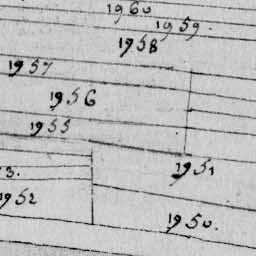 1960
1959.
1958
1957
1956
1955
1951
3.
1952
1950.